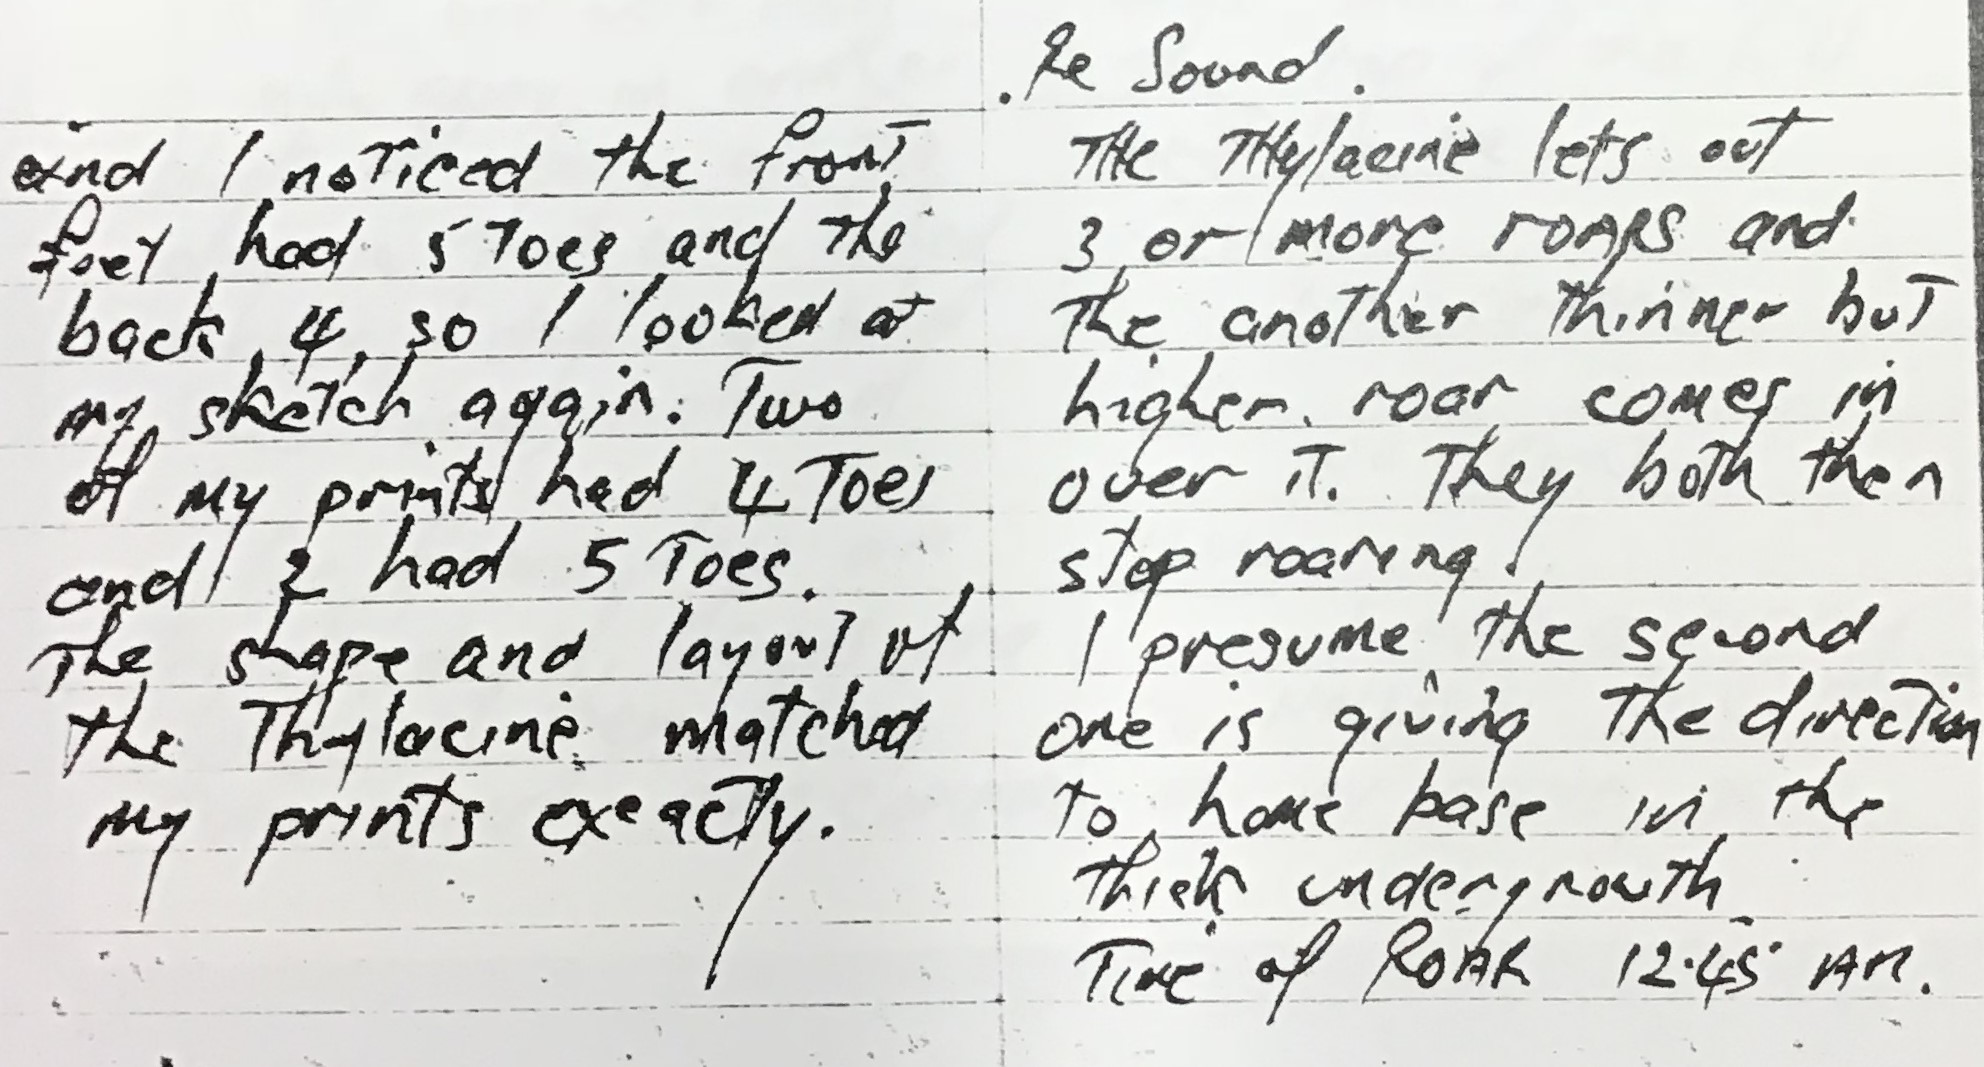 and I noticed the front
feet had 5 Toes and the
back 4, so I looked at
my sketch again. Two
of my prints had 4 Toes
and 2 had 5 Toes.
The shape and layout of
the Thylacine matched
my prints exeactly.
. Re Sound.
THe THylacine lets out
3 or more roars and
The another thinner but
higher roar comes in
over iT. They both then
stop roaring.
I presume the second
one is giving The direction
To home base in the
thick undergrowth
Time of ROAR 12.45 AM.